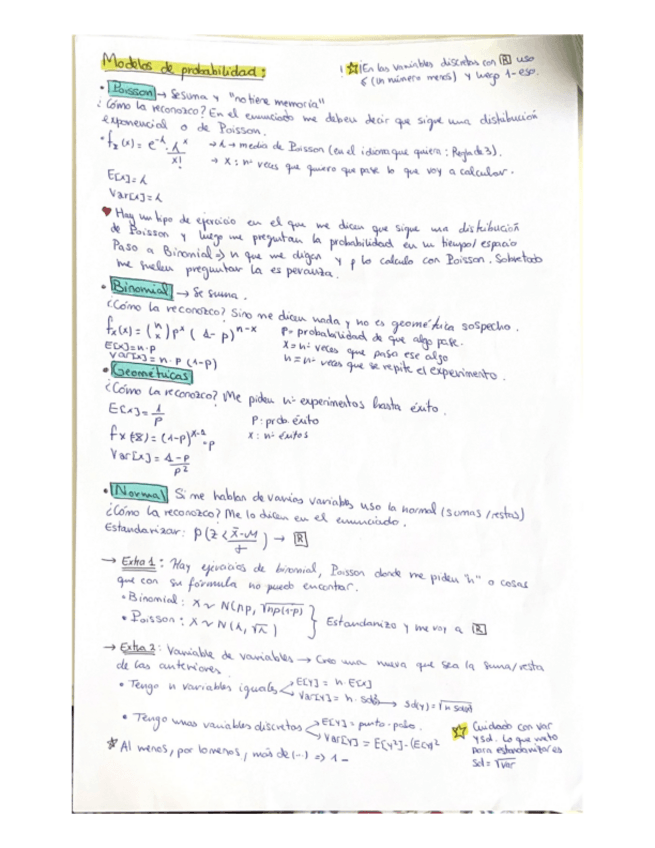 Modelos de probabilidad:
! ☆ ¡En las variables discretas con R uso
6 (un número menos) y luego 1-eso.
• Poisson → Se suma y "no tiene memoria"
¿Cómo la reconozco? En el enunciado me deben decir que sigue una distribución
exponencial o de Poisson.
• fx(x) = e^-λ · λ^x / x! → λ → media de Poisson (en el idioma que quiera: Regla de 3).
→ x: nº veces que quiero que pase lo que voy a calcular.
E[x]=λ
Var[x]=λ
♥ Hay un tipo de ejercicio en el que me dicen que sigue una distribución
de Poisson y luego me preguntan la probabilidad en un tiempo/espacio
Paso a Binomial ⇒ n que me digan y p lo calculo con Poisson. Sobretodo
me suelen preguntar la esperanza.
• Binomial → Se suma.
¿Cómo la reconozco? Sino me dicen nada y no es geométrica sospecho.
fx(x) = (n x) p^x (1-p)^n-x p= probabilidad de que algo pase.
E[x]=n·p x= nº veces que pasa ese algo
Var[x]= n·p (1-p) n= nº veces que se repite el experimento.
• Geométricas
¿Cómo la reconozco? Me piden nº experimentos hasta éxito.
E[x]= 1/p P: prob. éxito
fx(x) = (1-p)^x-1 · p x: nº éxitos
Var[x]= 1-p / p²
• Normal Si me hablan de varias variables uso la normal (sumas/restas)
¿Cómo la reconozco? Me lo dicen en el enunciado.
Estandarizar: P(Z < ) → R
→ Extra 1: Hay ejercicios de binomial, Poisson donde me piden "n" o cosas
que con su fórmula no puedo encontrar.
• Binomial: X ~ N(np, √np(1-p))
• Poisson: X ~ N(λ, √λ) } Estandarizo y me voy a R
→ Extra 2: Variable de variables → Creo una nueva que sea la suma/resta
de las anteriores.
• Tengo n variables iguales E[Y] = n·E[x]
Var[Y] = n· → sd(y)=
• Tengo unas variables discretas E[Y] = punto·peso.
Var[Y] = E[Y²]-(E[Y]²
☆ Cuidado con var
y sd. Lo que meto
para estandarizar es
sd = √var
☆ Al menos, por lo menos, más de (...) ⇒ 1 -